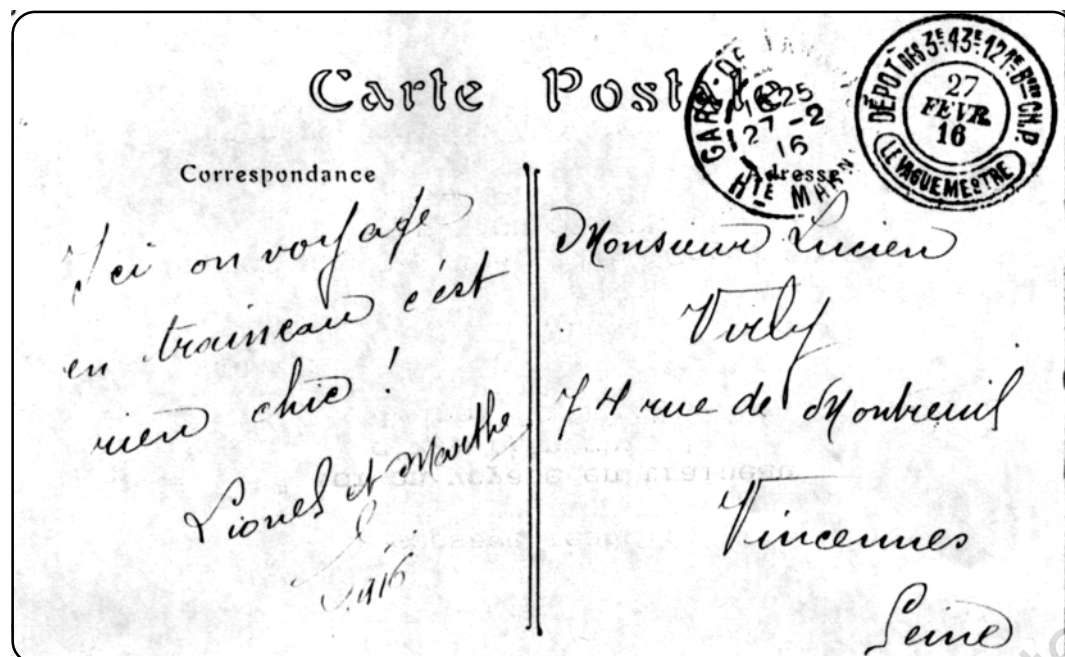 Carte Postale
GARE DE
16 25
27-2
16
HTE MARNE
DÉPOT DES 3E 13E 12
CH.P.
27
FÉVR.
16
LE VAGUEMESTRE
Correspondance
Adresse
Ici on voyage
en traineau c'est
rien chic !
Lionel et Marthe
1916
Monsieur Lucien
Virly
74 rue de Montreuil
Vincennes
Seine